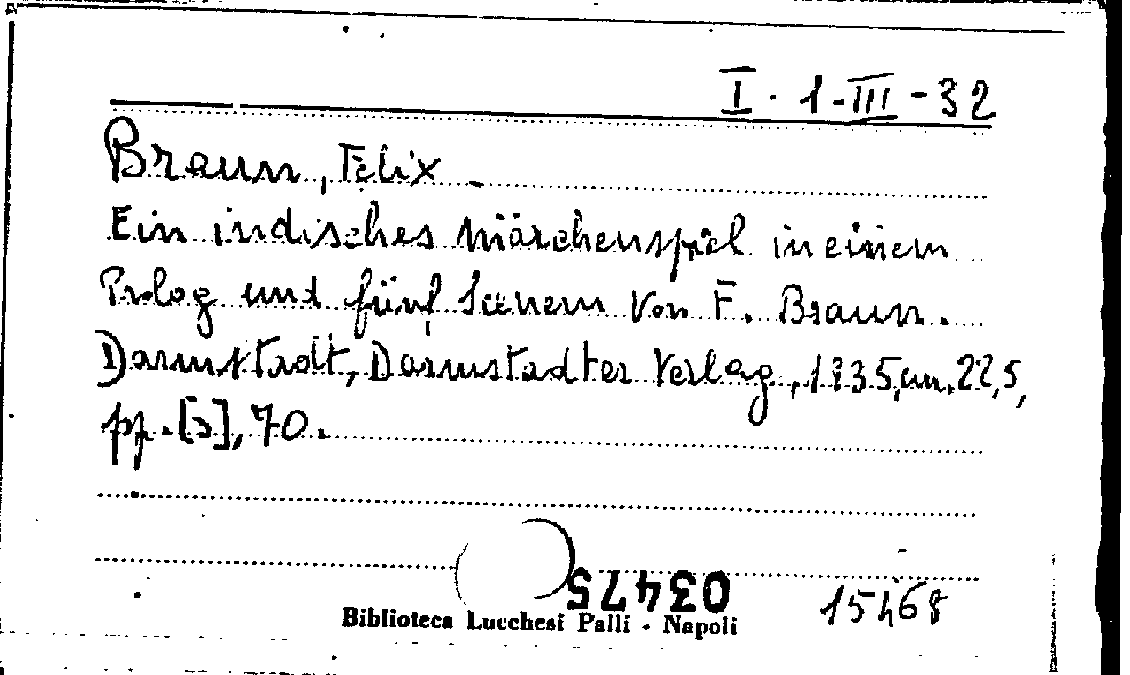 I. 1-III-32
Braun, Felix
Ein indisches Märchenspiel in einem
Prolog und fünf Scenem von F. Braun.
Darmstadt, Darmstadter Verlag, 1935, cm. 22,5,
pp. [3], 70.
03475
Biblioteca Lucchesi Palli - Napoli
15468